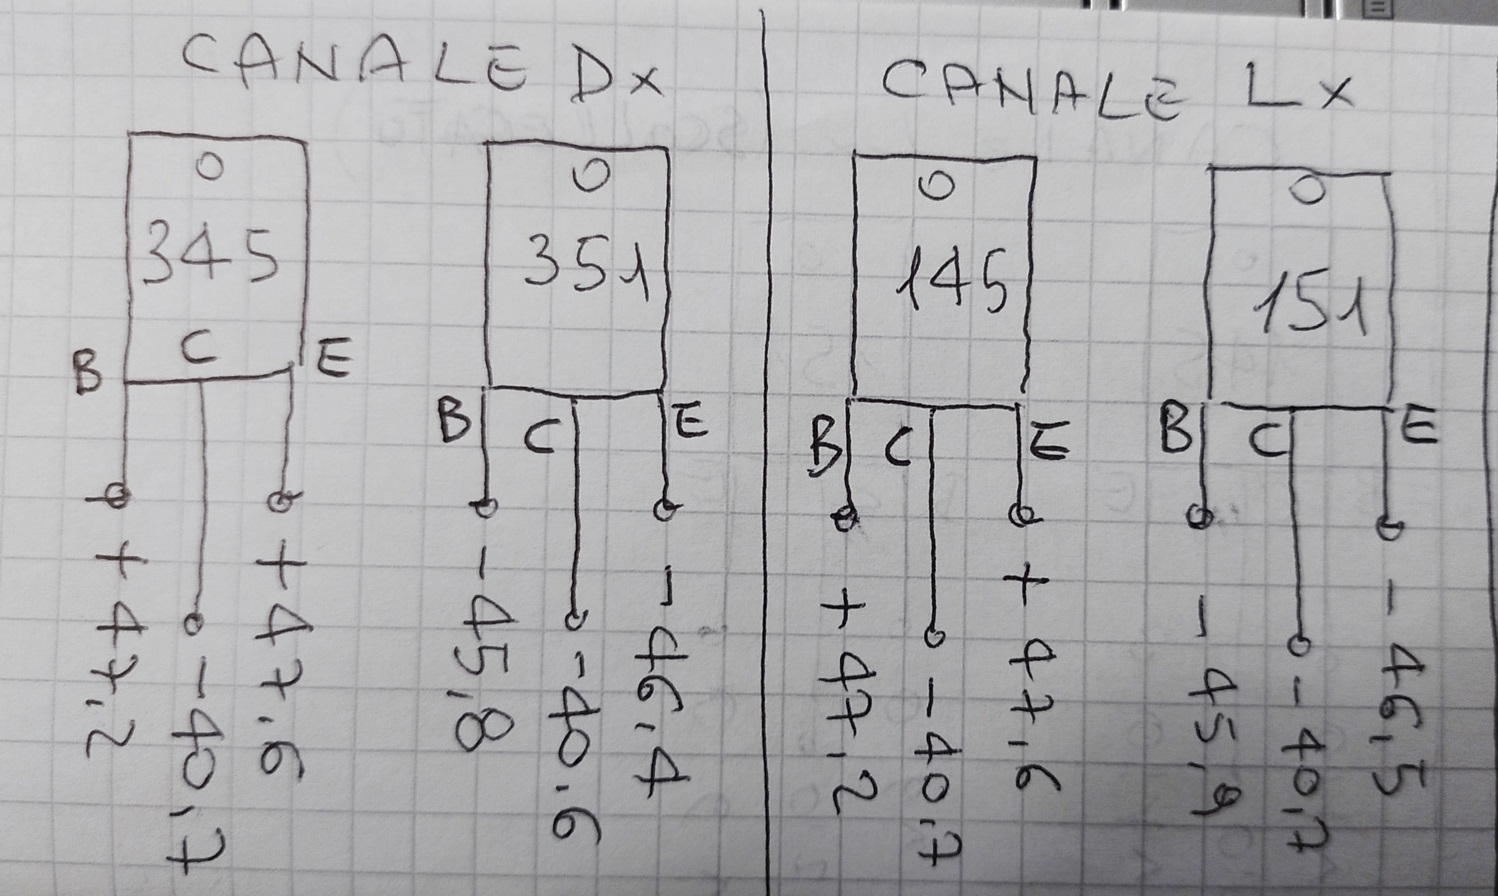 CANALE Dx
345
B C E
+ 47,2
- 40,7
+ 47,6
351
B C E
- 45,8
- 40,6
- 46,4
CANALE Lx
145
B C E
+ 47,2
- 40,7
+ 47,6
151
B C E
- 45,9
- 40,7
- 46,5